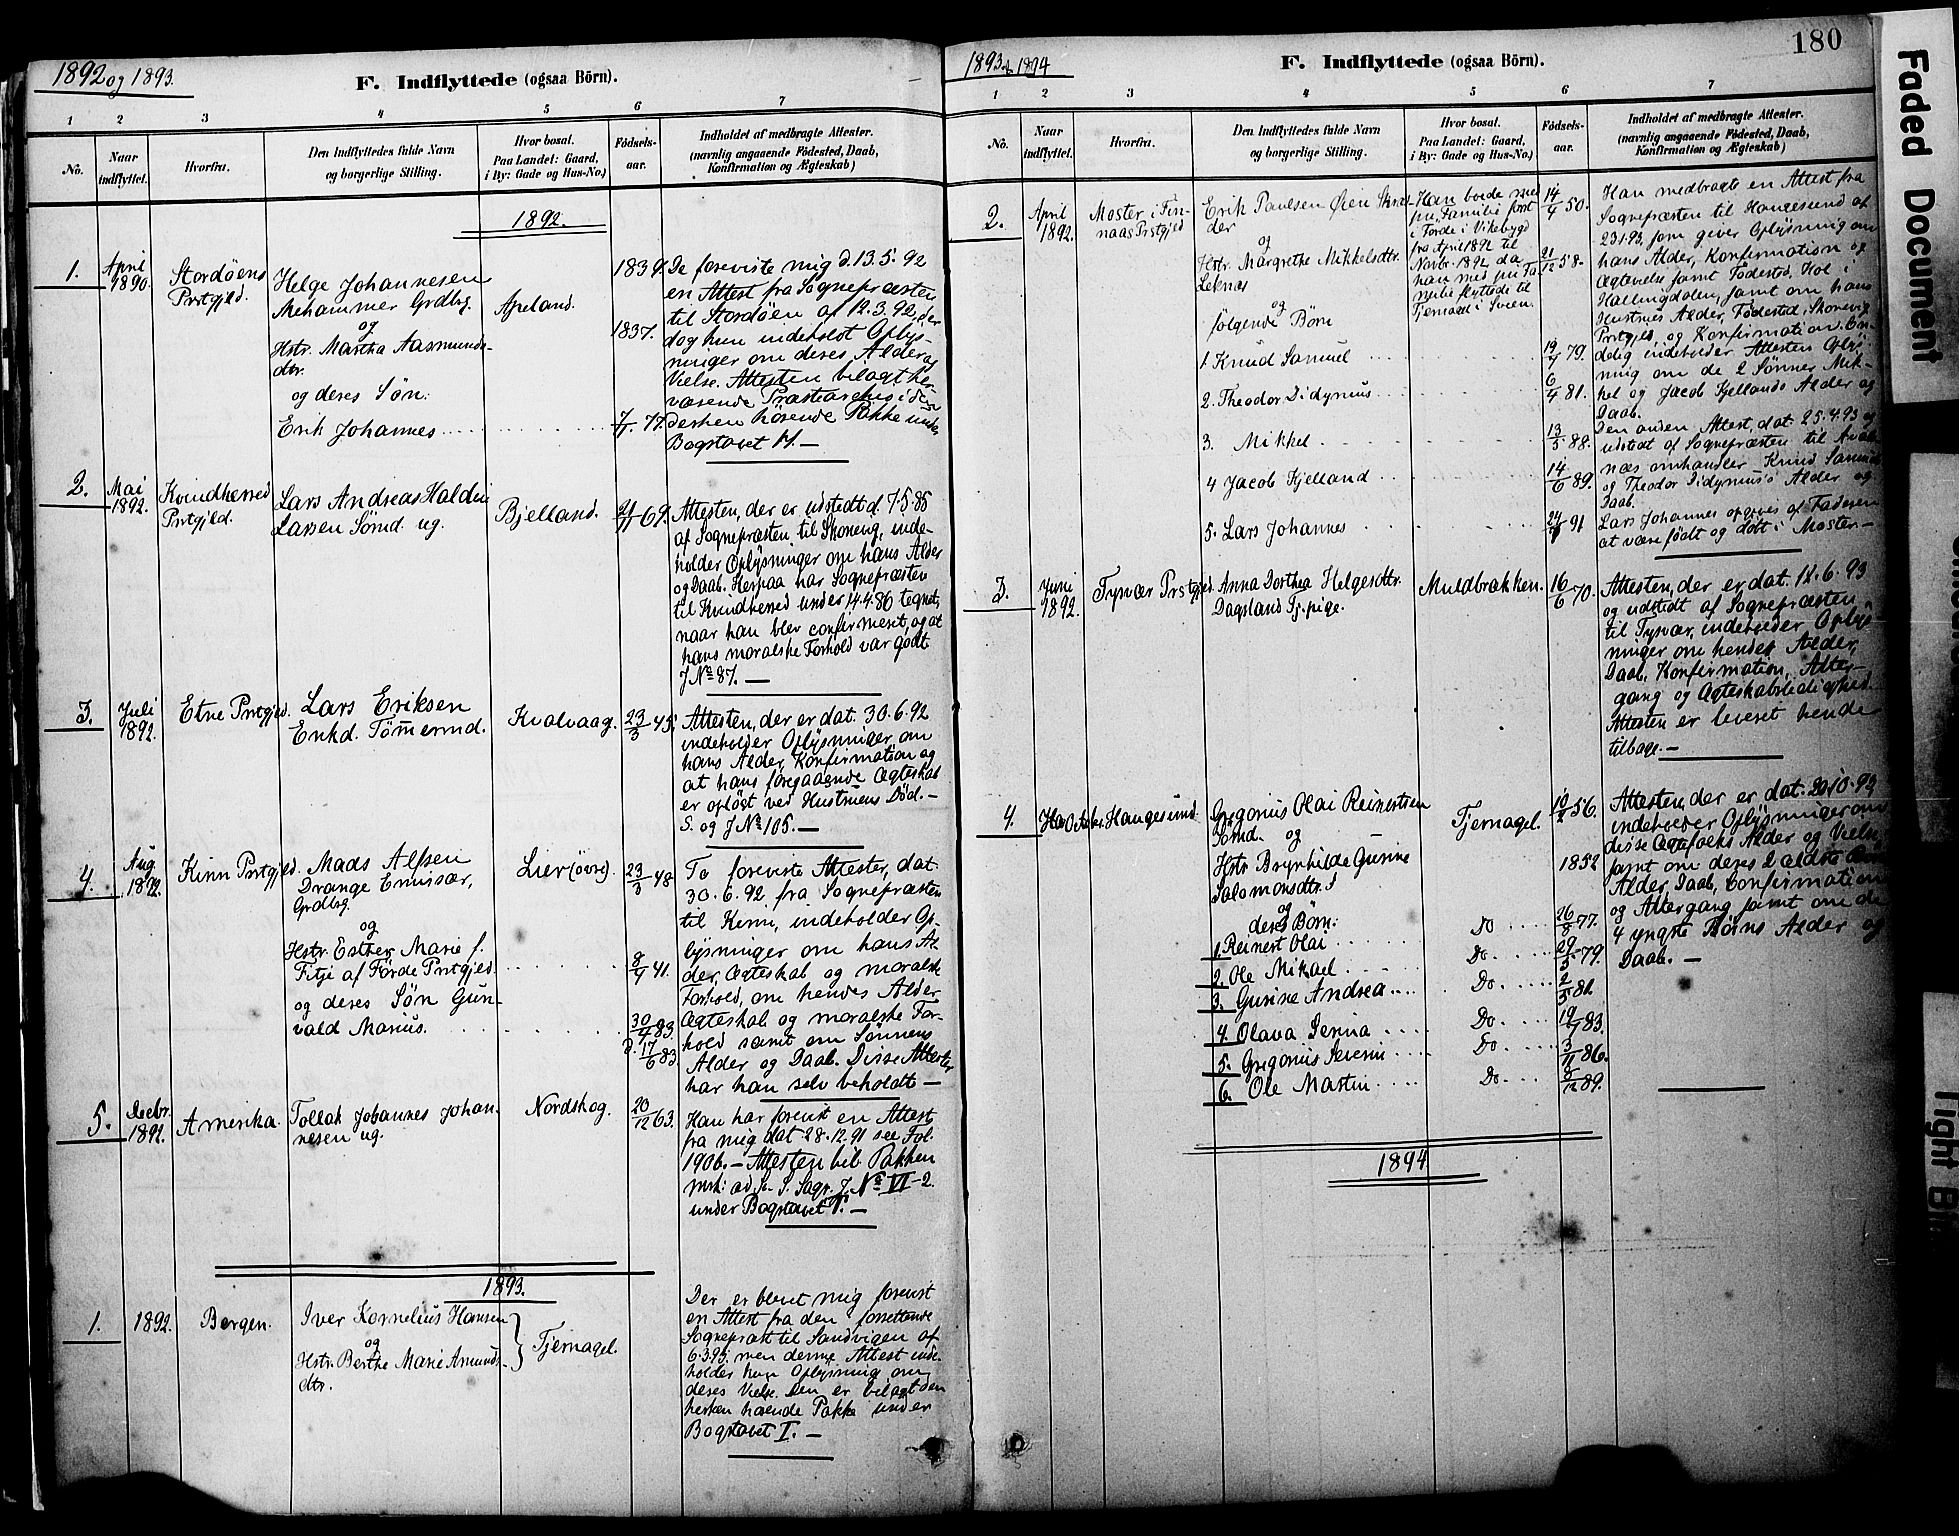 1892 og 1893.
F. Indflyttede (ogsaa Börn).
1 2 3 4 5 6 7
No.
Naar indflyttet.
Hvorfra.
Den Indflyttedes fulde Navn
og borgerlige Stilling.
Hvor bosat.
Paa Landet: Gaard,
i By: Gade og Hus-No.)
Födsels-
aar.
Indholdet af medbragte Attester.
(navnlig angaaende Födested, Daab,
Konfirmation og Ægteskab)
1892.
1.
April
1890.
Stordøens
Prstgjld.
Helge Johannesen
Mehammer Grdbrg.
og
Hstr. Martha Aasmunds-
dtr.
og deres Søn:
Erik Johannes
Apeland.
1839.
1837.
De foreviste mig d. 13.5.92
en Attest fra Sognepræsten
til Stordøen af 12.3.92, der
dog kun indeholdt Oplys-
ninger om deres Alder og
Vielse. Attesten bilagt her-
værende Præstearchiv i den
derhen hørende Pakke under
Bogstavet M. —
2.
Mai
1892.
Kvindherred
Prstgjld.
Lars Andreas Haldin
Larsen Sömd. ug.
Bjelland.
Attesten, der er udstedt d. 7.5.85
af Sognepræsten til Skonevig, inde-
holder Oplysninger om hans Alder
og Daab. Herpaa har Sognepræsten
til Kvindherred under 14.4.86 tegnet,
naar han blev confirmeret, og at
hans moralske Forhold var godt
J No 87. —
3.
Juli
1892.
Etne Prstgjld.
Lars Eriksen
Enkd. Tömmermd.
Kvalvaag.
23/3 45.
Attesten, der er dat. 30.6.92
indeholder Oplysninger om
hans Alder, Konfirmation og
at hans foregaaende Ægteskab
er opløst ved Hustruens Død. —
S. og J No 105. —
4.
Aug
1892.
Kinn Prstgjeld.
Mads Alfsen
Drange Emissær,
Grdbrg.
og
Hstr. Esther Marie f.
Fitje af Förde Prstgjld.
og deres Søn Gun-
vald Marius.
Lier (övre)
23/3 48
8/4 41.
30/4 83.
d. 17/6 83.
To foreviste Attester, dat.
30.6.92 fra Sognepræsten
til Kinn, indeholder Op-
lysninger om hans Al-
der, Ægteskab og moralske
Forhold, om hendes Alder
Ægteskab og moralske For-
hold samt om Sønnens
Alder og Daab. Disse Attester
har han selv beholdt —
5.
Decbr.
1892.
Amerika.
Tollak Johannes Johan-
nesen ug.
Nordskog.
20/12 63.
Han har forevist en Attest
fra mig dat. 28.12.91 see Fol.
190b. — Attesten bil. Pakken
under Bogstavet T. —
1893.
1.
1892.
Bergen.
Iver Kornelius Hansen
og
Hstr. Berthe Marie Amunds-
dtr.
Tjernagel.
Der er blevet mig forevist
en Attest fra den forrettende
Sognepræst til Sandvigen af
6.3.93, men denne Attest inde-
holder kun Oplysning om
deres Vielse. Den er bilagt den
herhen hørende Pakke under
Bogstavet I. —
180
1893 og 1894
F. Indflyttede (ogsaa Börn).
1 2 3 4 5 6 7
No.
Naar
indflyttet.
Hvorfra.
Den Indflyttedes fulde Navn
og borgerlige Stilling.
Hvor bosat.
Paa Landet: Gaard,
i By: Gade og Hus-No.)
Födsels-
aar.
Indholdet af medbragte Attester.
(navnlig angaaende Födested, Daab,
Konfirmation og Ægteskab)
2.
April
1892.
Moster i Fin-
naas Prstgjld
Erik Paulsen Øien Skræd-
der
og
Hstr. Margrethe Mikkelsdtr.
Leknæs
og
følgende Børn
1. Knud Samuel
2. Theodor Didymus
3. Mikkel
4 Jacob Kjelland
5. Lars Johannes
Han boede med
sin Familie først
i Førde i Vikebygd
fra April 1892 til
Novbr. 1892 da
han med sin Fa-
milie flyttede til
Tjernagel i Sveen.
14/4 50.
21/12 58.
19/4 79.
6/4 81.
13/5 88.
14/6 89.
Han medbragte en Attest fra
Sognepræsten til Haugesund af
23.1.93, som giver Oplysning om
hans Alder, Konfirmation og
Ægtevielse samt Födested, Hol i
Hallingdalen, samt om hans
Hustrues Alder, Födested, Skonevig
Prstgjld, og Konfirmation. En-
delig indeholder Attesten Oplys-
ning om de 2 Sønner Mik-
kel og Jacob Kjellands Alder og
Daab.
Den anden Attest, dat. 25.4.93 og
udstedt af Sognepræsten til Avalds-
næs omhandler Knud Samuels
og Theodor Didymus's Alder og
Daab.
Lars Johannes opgives af Faderen
at være født og døbt i Moster —
3.
Juni
1892.
Tysvær Prstgjld.
Anna Dorthea Helgesdtr.
Dagsland Tj. pige.
Muldbrækken.
16/6 70.
Attesten, der er dat. 12.6.93
og udstedt af Sognepræsten
til Tysvær, indeholder Oplys-
ninger om hendes Alder,
Daab, Konfirmation, Alter-
gang og Ægteskabsledighed.
Attesten er leveret hende
tilbage. —
4.
Haugesund
Gregorius Olai Reinertsen
Sömd. og
Hstr Brynhilde Gurine
Salomonsdtr.
og
deres Børn:
1. Reinert Olai
2. Ole Mikael
3. Gurine Andrea
4. Olava Serina
5. Gregorius Severin
6. Ole Martin
Tjernagel.
Do
Do
Do.
Do.
Do.
Do.
56.
1852
26/8 77.
29/3 79.
2/5 81.
19/1 83.
3/11 86.
5/12 89.
Attesten, der er dat. 20.10.93
indeholder Oplysninger om
disse Ægtefolks Alder og Vielse
samt om deres 2 ældste Børns
Alder, Daab, Confirmation
og Altergang samt om de
4 yngste Børns Alder og
Daab. —
1894
Faded Document
Tight Bi